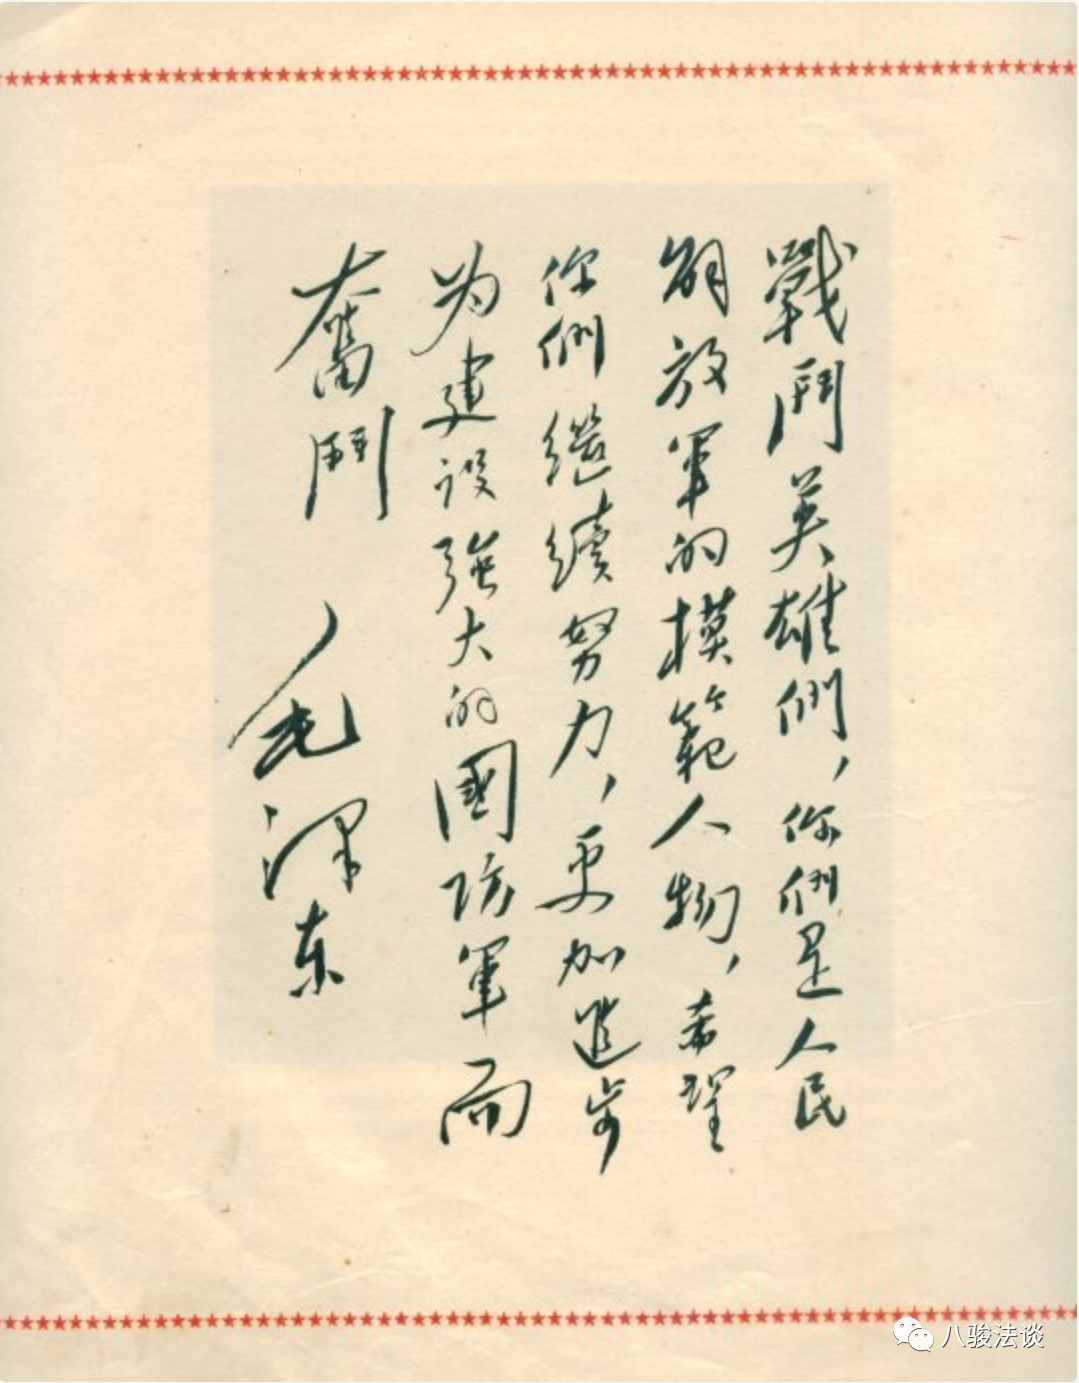 戰鬥英雄們，你們是人民
解放軍的模範人物，希望
你們繼續努力，更加進步
为建設強大的國防軍而
奮鬥
毛澤东
八骏法谈